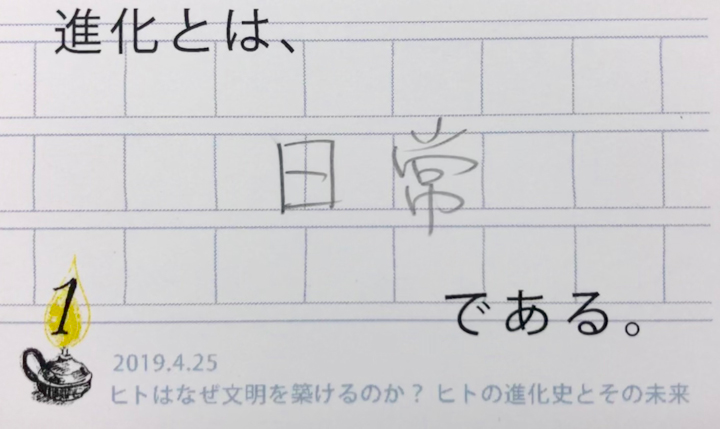 進化とは、
日常
である。
1
2019.4.25
ヒトはなぜ文明を築けるのか？ ヒトの進化史とその未来